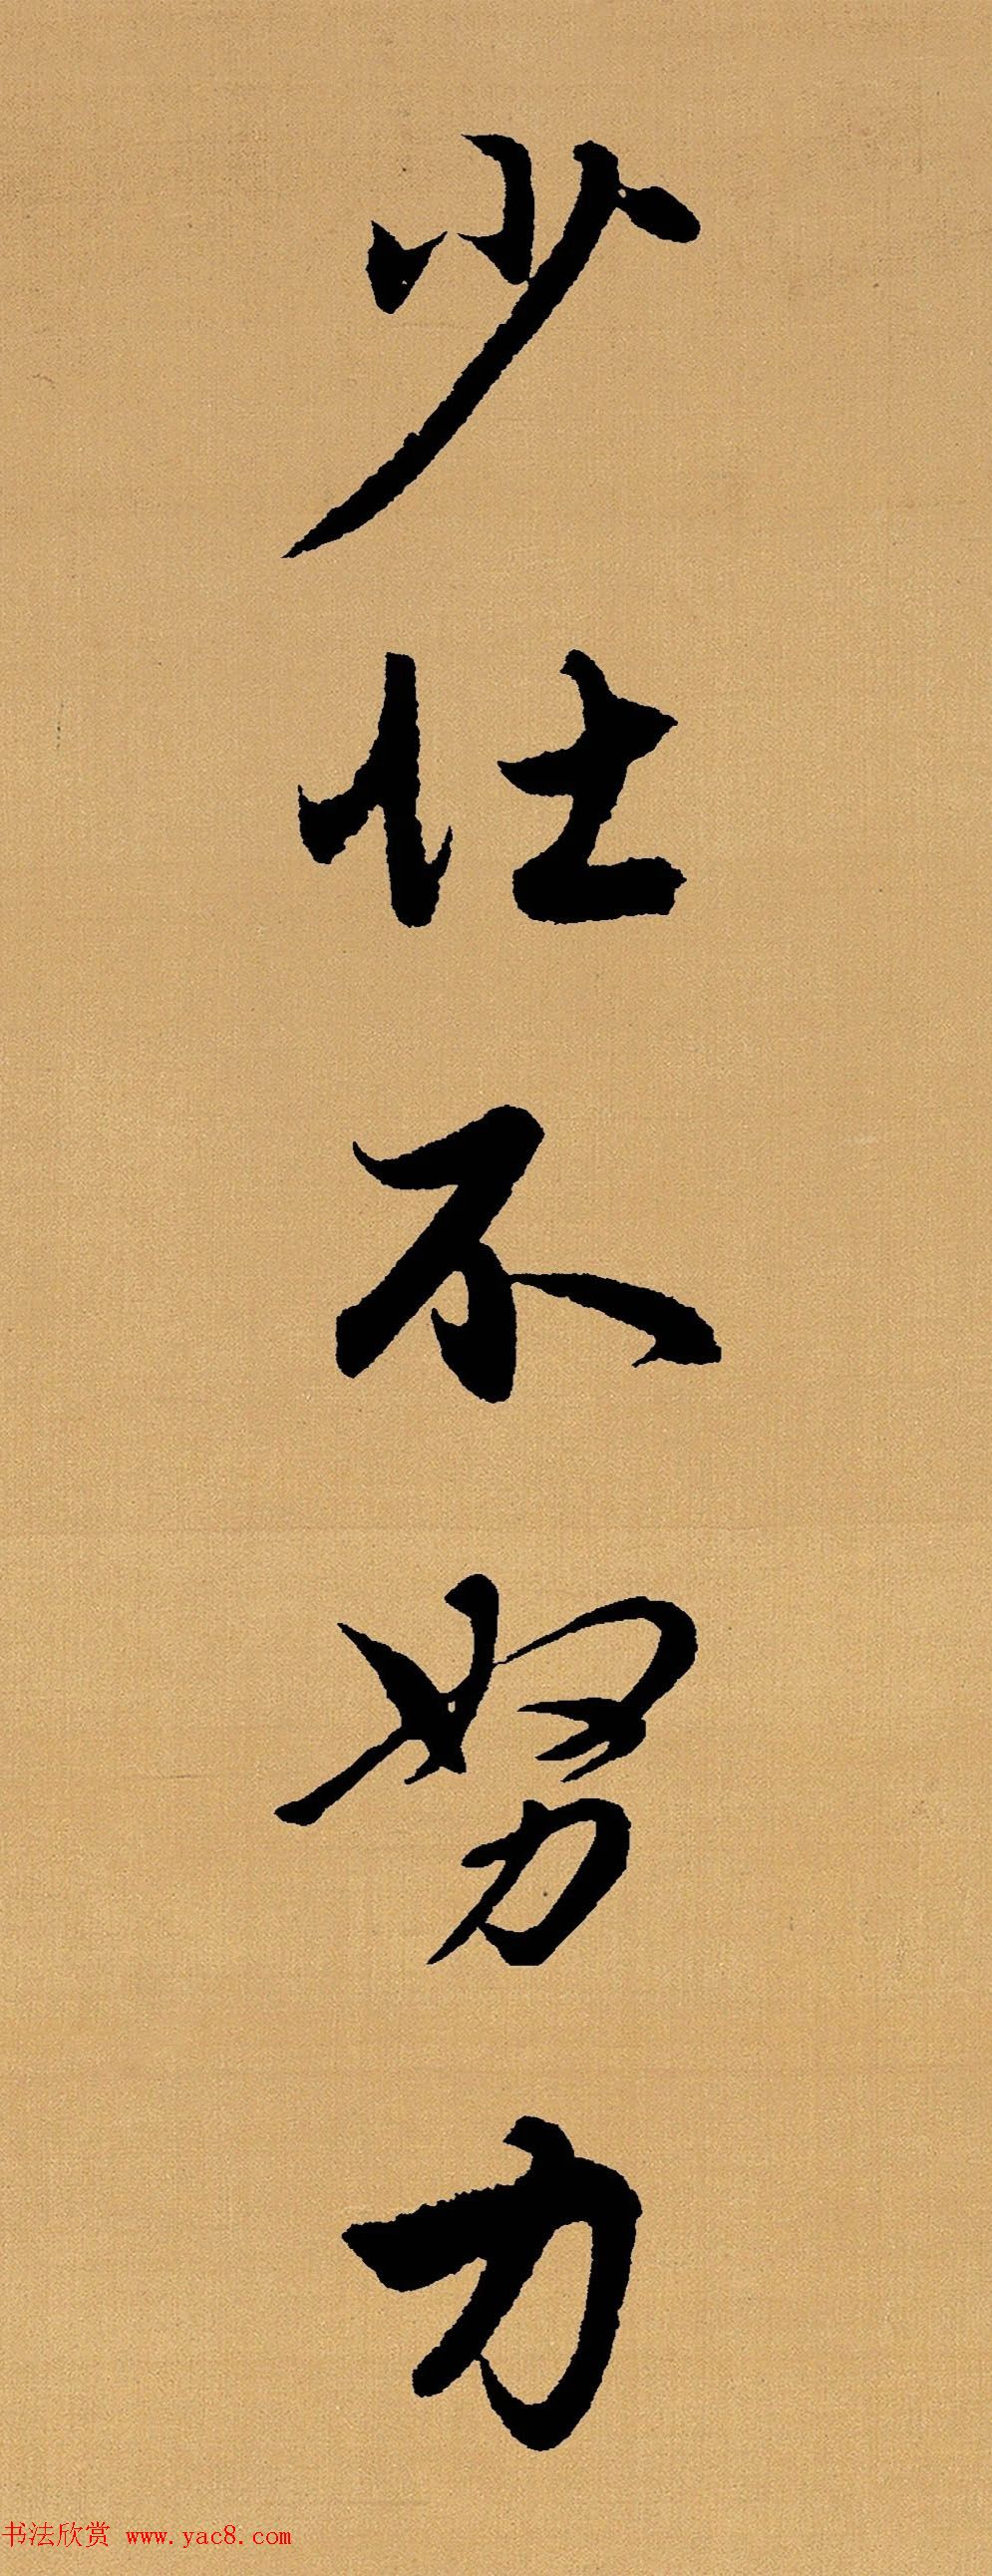 少壮不努力
书法欣赏 www.yac8.com